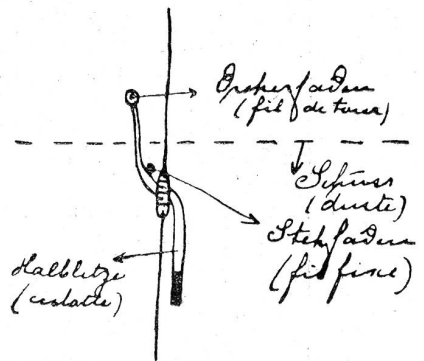 Dreherfaden
(fil de tour)
Schuss
(duite)
Stehfaden
(fil fixe)
Halblitze
(culotte)